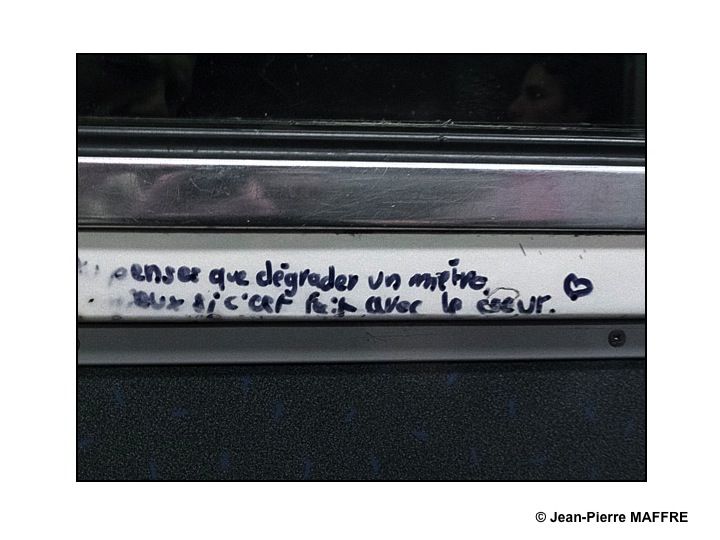 penser que dégrader un métro
eux si c'est fait avec le coeur.
© Jean-Pierre MAFFRE